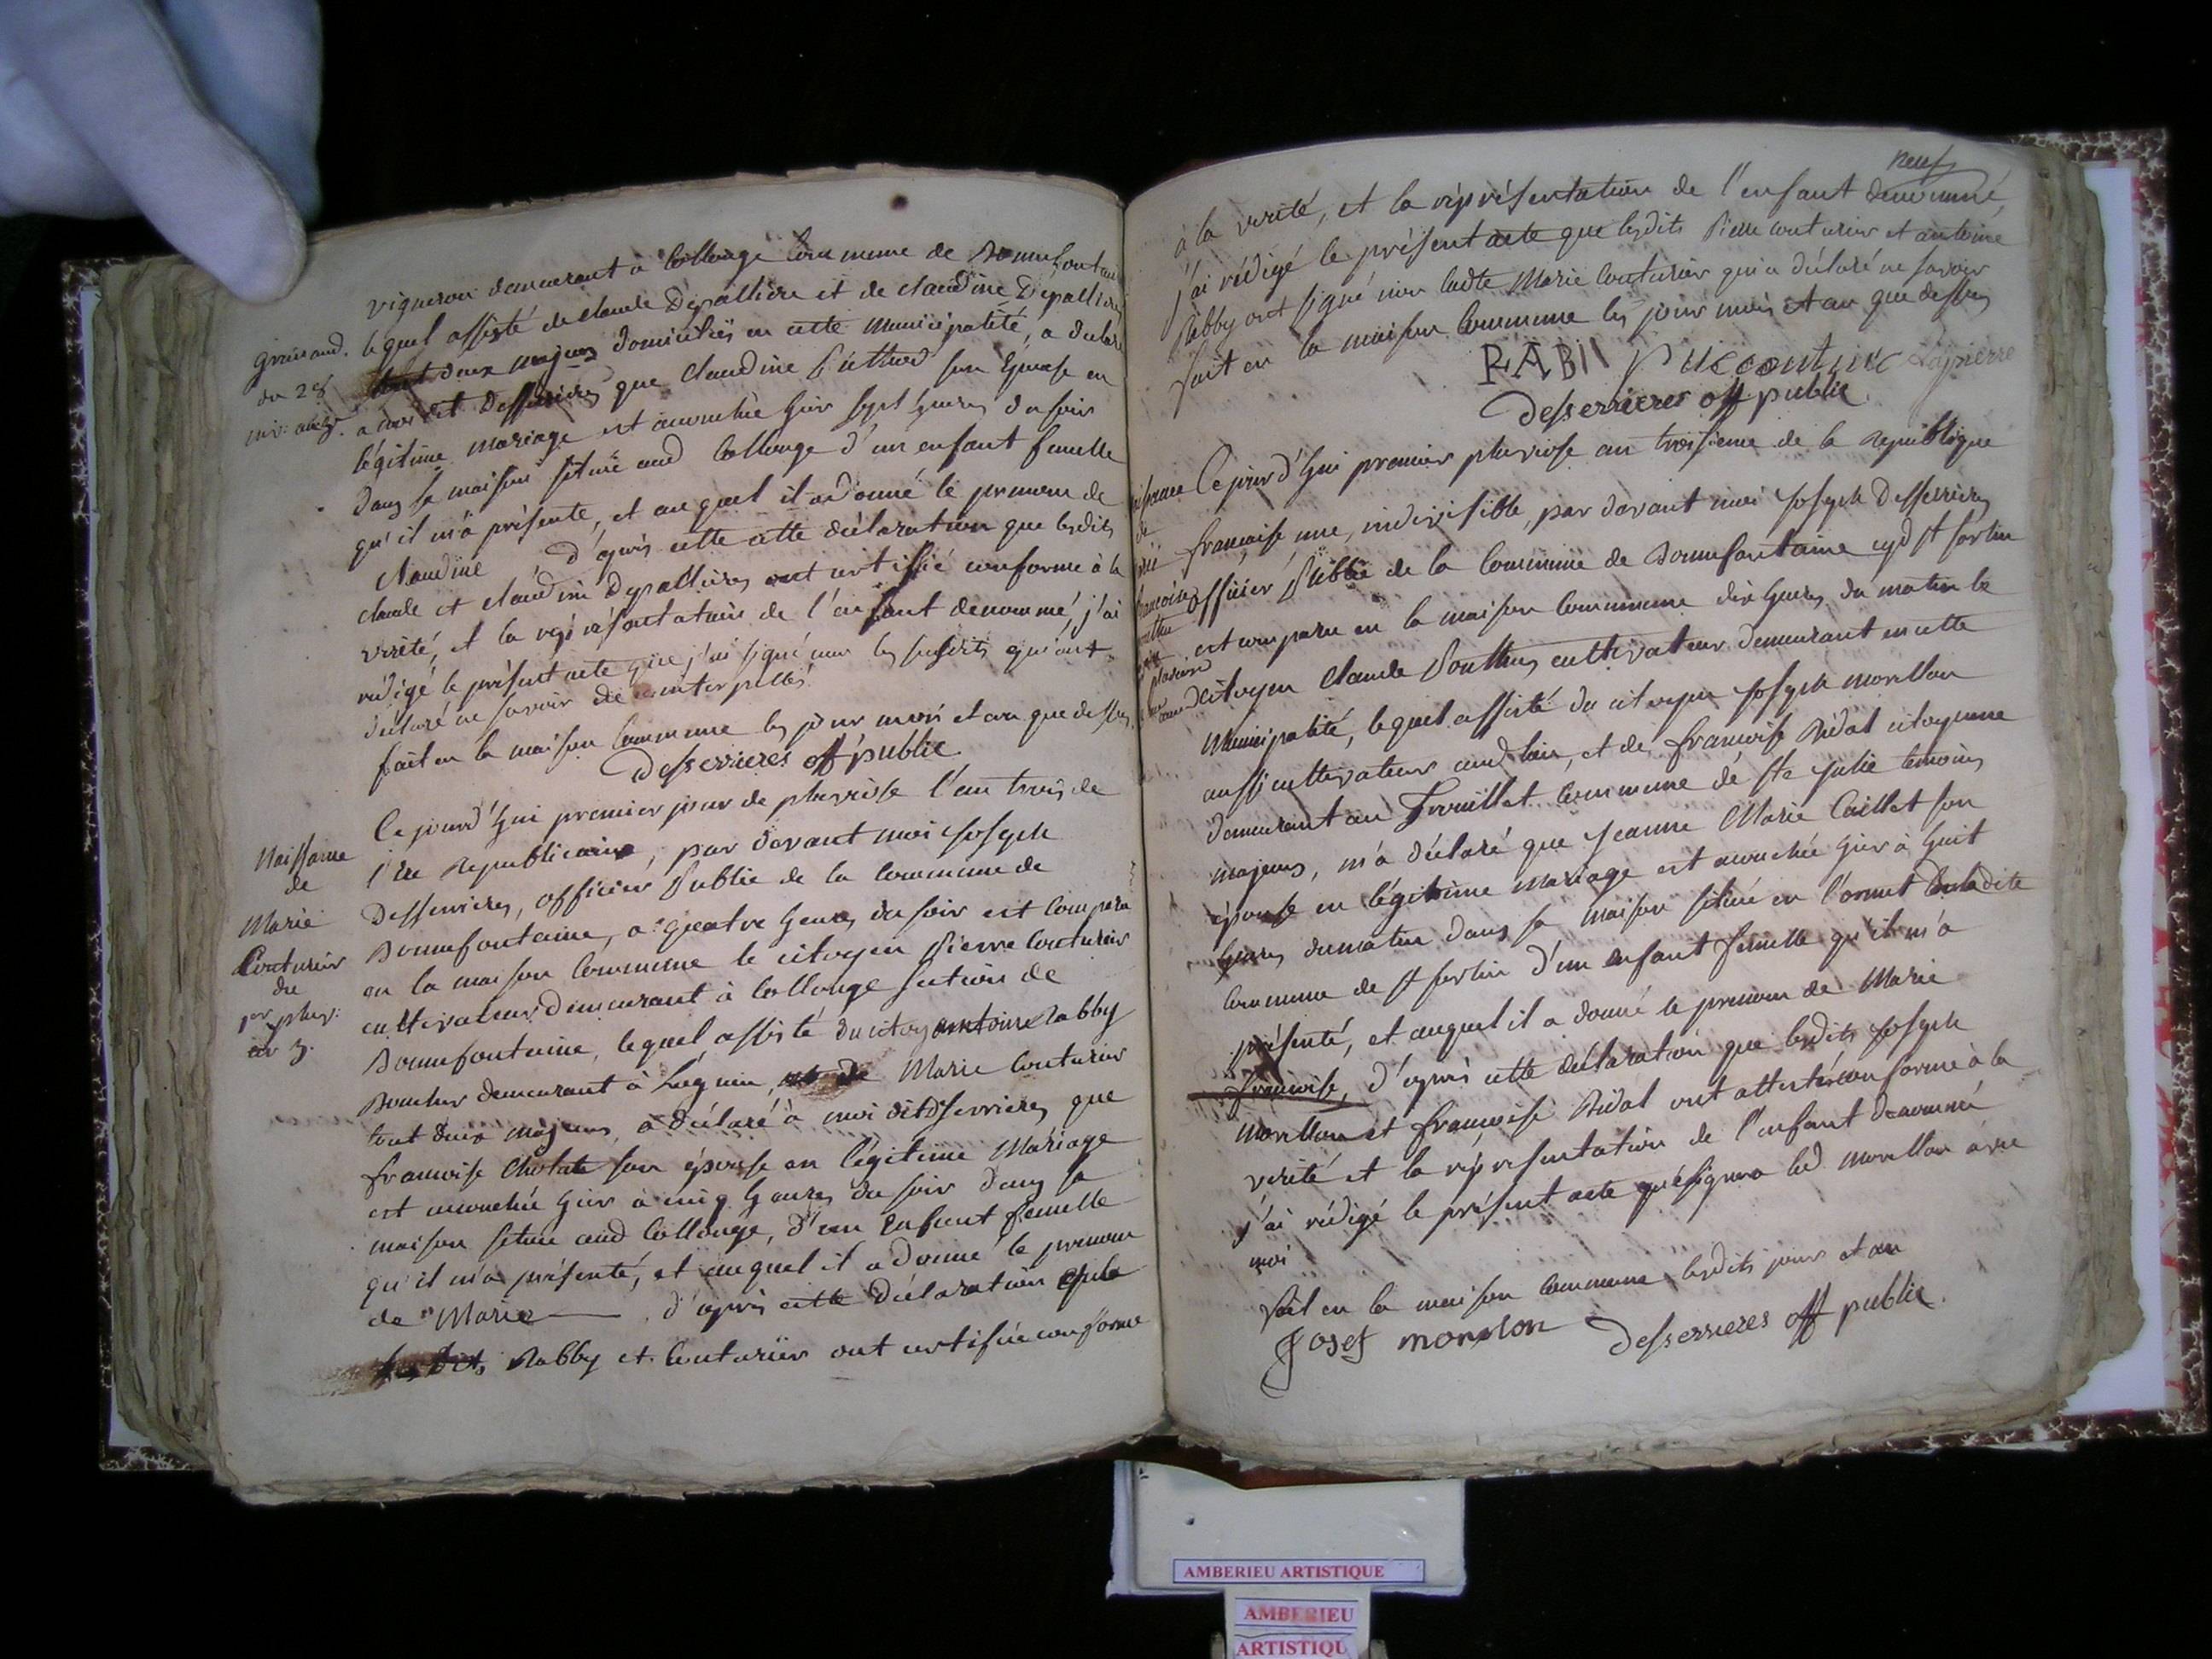 vigneron demeurant à Collonge Commune de Bonnefontaine
lequel assisté de claude Depallière et de claudine Depallières
tout deux majeurs domiciliés en cette municipalité, a déclaré
a moi dit Desserrieres que Claudine son Epouse en
légitime mariage est accouchée hier sept heures du soir
Dans sa maison située aud Collonge d'un enfant femelle
qu'il m'a présenté, et auquel il a donné le prenom de
Claudine D'après cette cette déclaration que lesdits
claude et claudine Depallières ont certifié conforme à la
vérité, et la représentation de l'enfant denommé, j'ai
rédigé le présent acte que j'ai signé non les susdits qui ont
déclaré ne savoir de ce interpellés
fait en la maison Commune les jour mois et an que dessus
Desserrieres off public
grainand.
du 28
niv. an 3.
Naissance
de
Marie
Couturier
du
1er pluv:
an 3.
Ce jourd'hui premier jour de pluviose l'an trois de
l'Ere Republicaine, par devant moi Joseph
Desserrieres, officier Public de la Commune de
Bonnefontaine, a quatre heures du soir est comparu
en la maison Commune le citoyen Pierre Couturier
cultivateur demeurant à Collonge section de
Bonnefontaine, lequel assisté du citoy antoine Rabby
demeurant à Lagnieu, et de Marie Couturier
tout deux majeurs, a déclaré à moi dit Dserrieres que
francoise son épouse en légitime Mariage
est accouchée hier à cinq heures du soir dans sa
maison située aud Collonge, d'un Enfant femelle
qu'il m'a présenté, et auquel il a donné le prenom
de Marie d'après cette déclaration que
les dits Rabby et Couturier ont certifiée conforme
neuf
à la verité, et la réprésentation de l'enfant denommé,
j'ai rédigé le présent acte que lesdits Pierre couturier et antoine
Rabby ont signé non ladte Marie Couturier qui a déclaré ne savoir
fait en la maison Commune les jour mois et an que dessus
RABII Lapierre
Desserrieres off public
Ce jour d'hui premier pluviose an troisieme de la Republique
française une, indivisible, par devant moi Joseph Desserrieres
officier Public de la Commune de Bonnefontaine cyd St sorlin
est comparu en la maison Commune dix heures du matin le
citoyen Claude Bouthus cultivateur demeurant en cette
Municipalité, lequel assisté du citoyen Joseph morellon
aussi cultivateur aud lieu, et de francoise Bidal citoyenne
demeurant au Trouillet Commune de Ste Julie temoins
majeurs, m'a déclaré que Jeanne Marie Caillet son
épouse en légitime mariage est accouchée hier à huit
heures dumatin dans sa maison située en l'ormet Ladite
Commune de St sorlin d'un enfant femelle qu'il m'a
présenté, et auquel il a donné le prenom de Marie
francoise, d'après cette déclaration que lesdits Joseph
Morellon et francoise Bidal ont attesté conforme à la
verité et la réprésentation de l'enfant denommé
j'ai rédigé le présent acte qu'a signé led morellon avec
moi
fait en la maison Commune lesdits jour et an
Josef morelon Desserrieres off public.
AMBERIEU ARTISTIQUE
AMBERIEU
ARTISTIQU